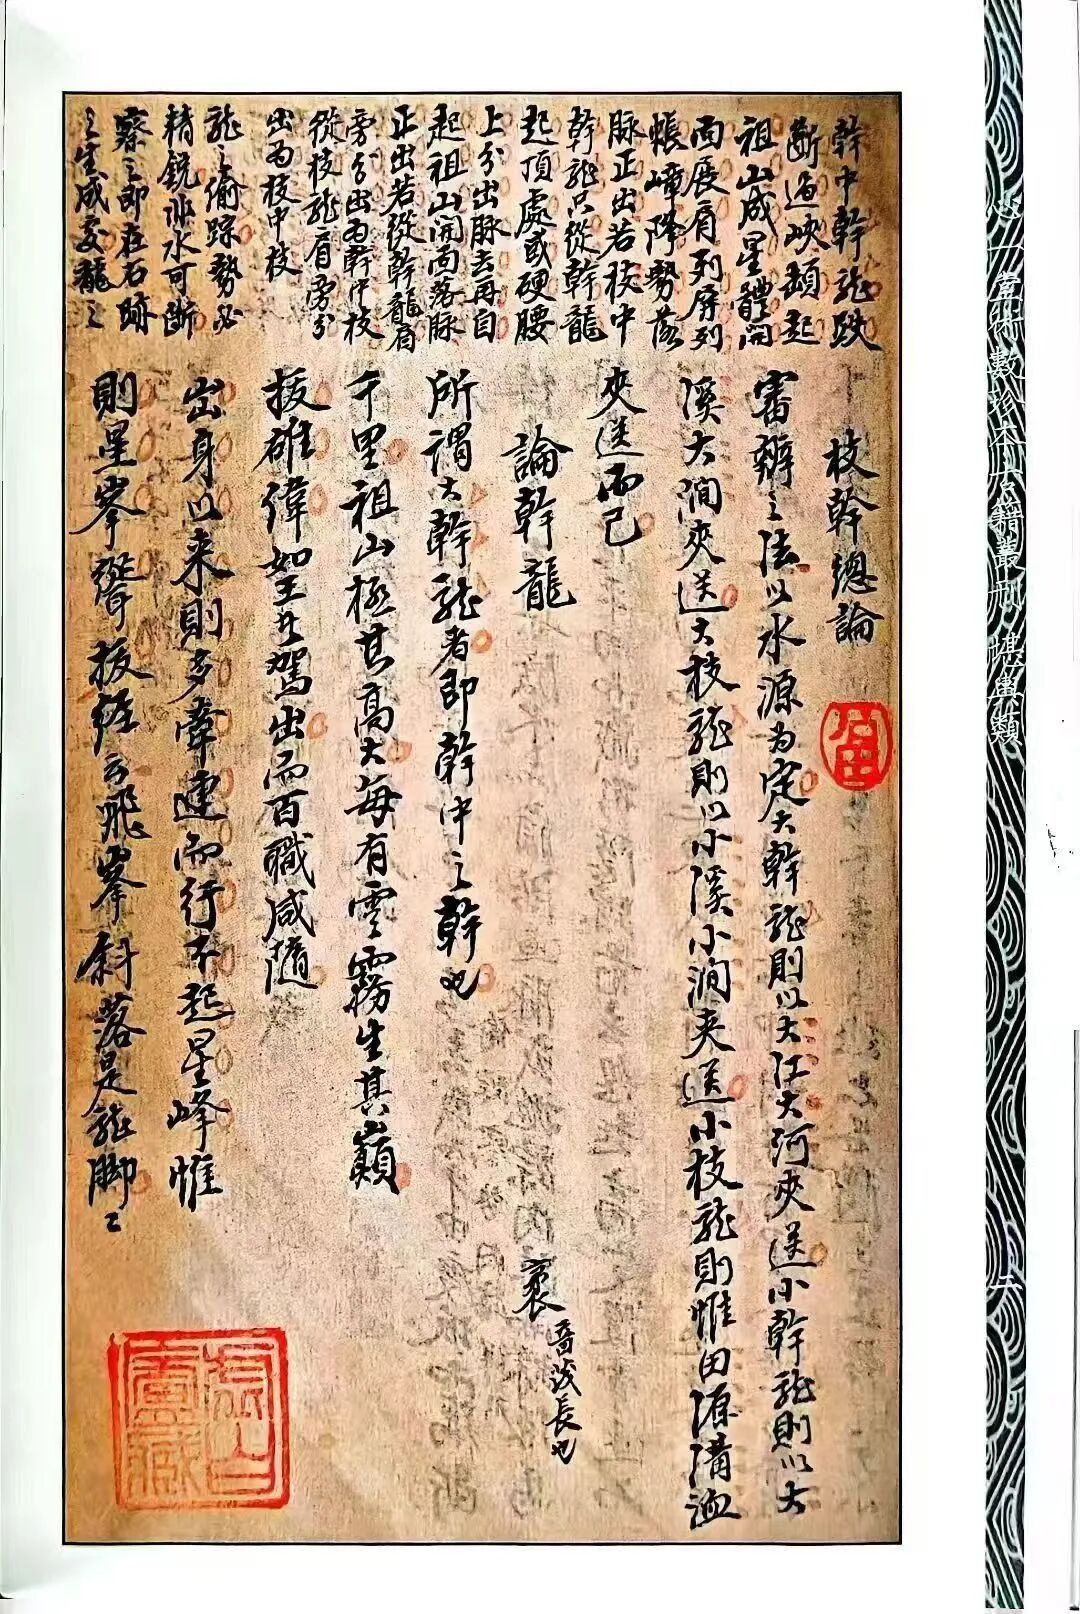 幹中幹龍跌
斷過峽頓起
祖山成星體開
面展肩列屏列
帳嶂降勢落
脉正出若枝中
幹龍只從幹龍
起頂處或硬腰
上分出脉去再自
起祖山開面落脉
正出若從幹龍肩
旁分出為幹中枝
從枝龍肩旁分
出為枝中枝
龍之偷踪勢必
精銳非水可斷
察之即在石跡
之生成交龍之
枝幹總論
審辨之法以水源為定大幹龍則以大江大河夾送小幹龍則以大
溪大澗夾送大枝龍則以小溪小澗夾送小枝龍則惟田源溝洫
夾送而已
論幹龍
袤音茂長也
所謂大幹龍者即幹中之幹也
千里祖山極其高大每有雲霧生其巔
拔雄偉如至尊駕出而百職咸隨
出身以来則多牽連而行不起星峰惟
則星峯聳拔經云飛峯斜落是龍脚〻
心一堂術數珍本古籍叢刊 堪輿類
二
虛白廬藏